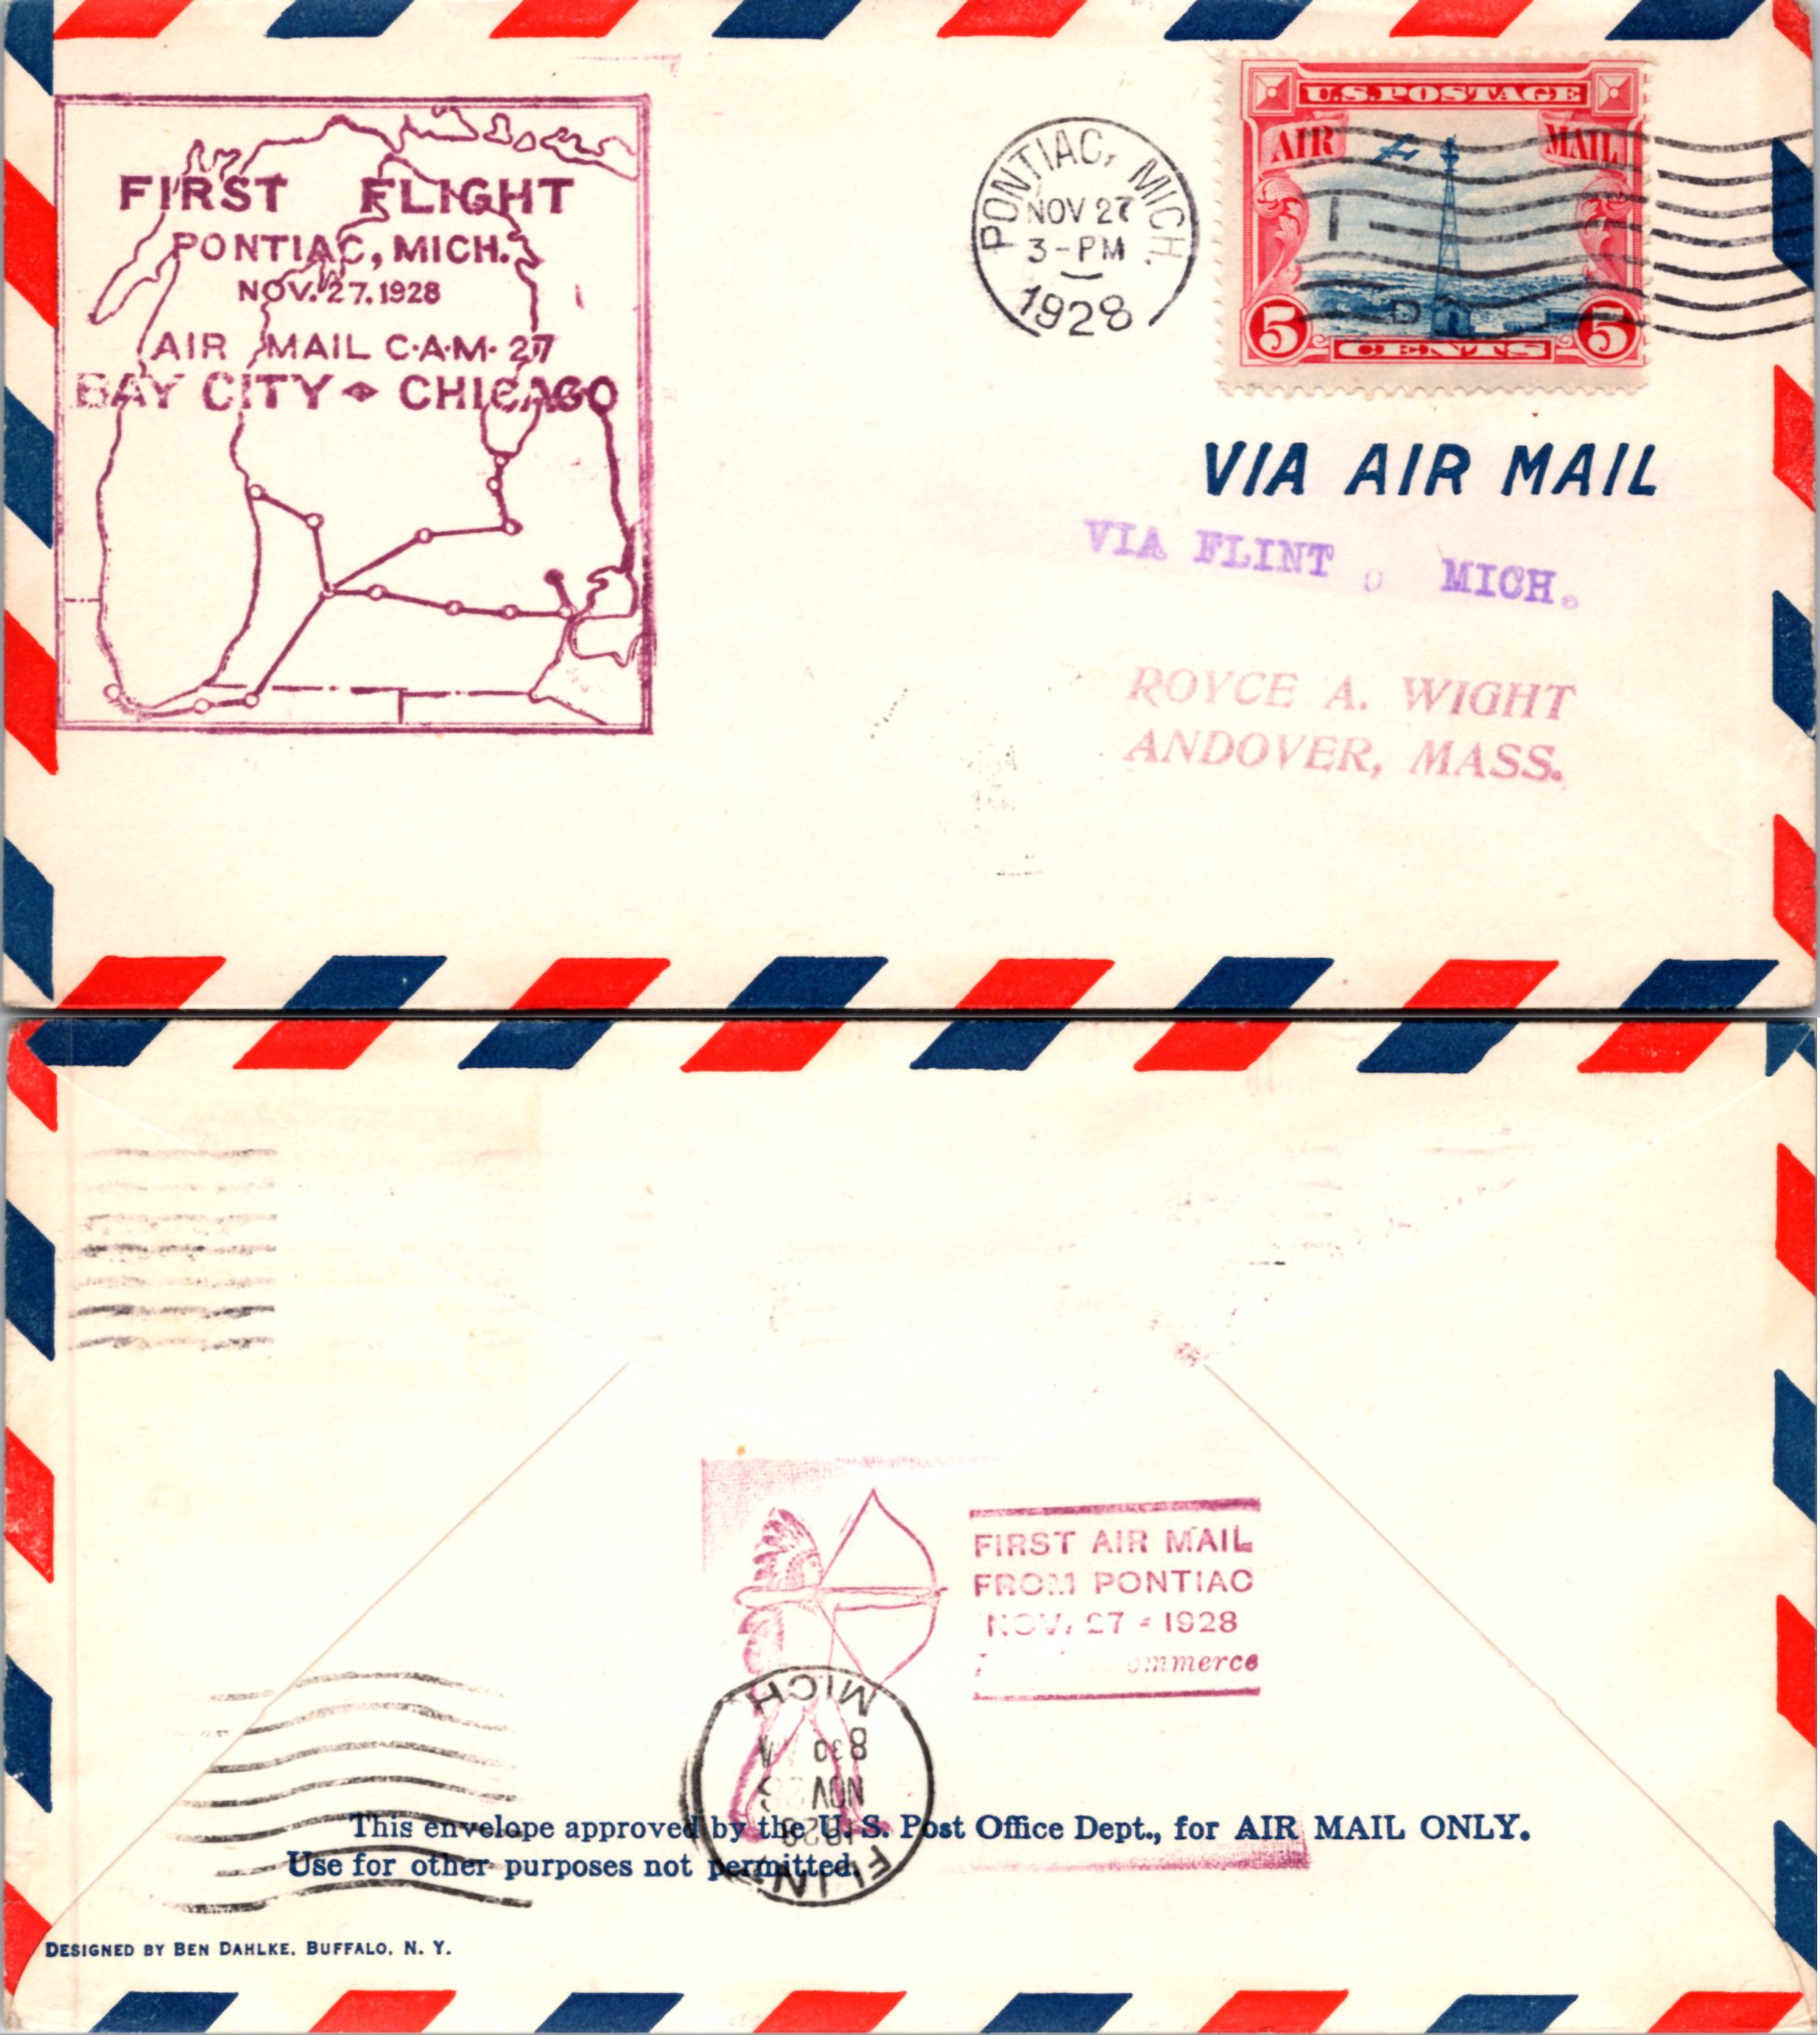 FIRST FLIGHT
PONTIAC, MICH.
NOV. 27. 1928
AIR MAIL C·A·M· 27
BAY CITY CHICAGO
PONTIAC, MICH.
NOV 27
3-PM
1928
U.S. POSTAGE
AIR MAIL
5 CENTS 5
VIA AIR MAIL
VIA FLINT, MICH.
ROYCE A. WIGHT
ANDOVER, MASS.
FIRST AIR MAIL
FROM PONTIAC
NOV. 27 - 1928
MICH
8 30
NOV
1928
FLINT
This envelope approved by the U. S. Post Office Dept., for AIR MAIL ONLY.
Use for other purposes not permitted.
DESIGNED BY BEN DAHLKE, BUFFALO, N. Y.